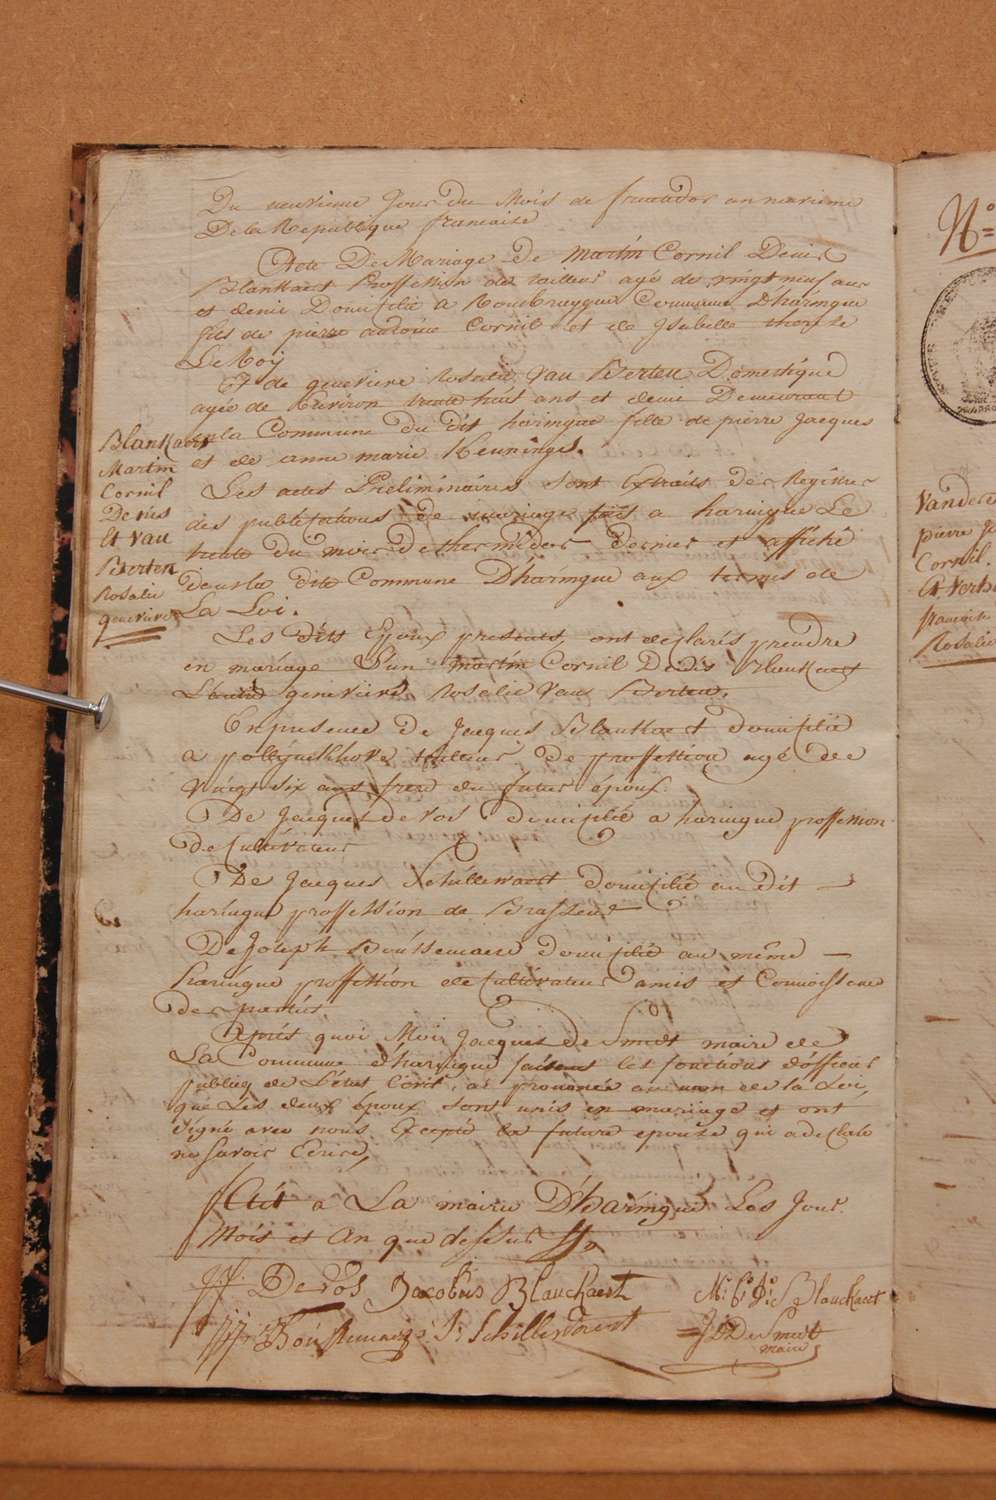 Du neuvieme Jour Du Mois de fructidor an neuvieme
De la Republique francaise
Acte De Mariage De Martin Cornil Denis
Blankaert Proffession de tailleur agé de vingt neuf ans
et demie Domicilié a Rousbrugge Commune D'haringue
fils de pierre antoine Cornil et de Isabelle therese
Le Roij
Et de genevieve Rosalie Van Berten Domestique
agée de Environ trente huit ans et demie Demeurant
en la Commune du dit haringue fille de pierre Jacques
et de anne marie Keuninge.
Les actes Preliminaires sont Extraits des Registres
des publications de mariage fait a haringue Le
trente du mois De thermidor dernier et affiché
deus la dite Commune D'haringue aux termes de
La Loi.
Les dits Epoux presents, ont declarés prendre
en mariage L'un Martin Cornil Denis Blankaert
L'autre genevieve Rosalie Van Berten.
En presence De Jacques Blankaert domicilié
a pollinckhove tailleur De proffession agé de
vingt six ans frere du futur époux.
De Jacques de vos domicilié a haringue proffession
de Cultivateur
De Jacques Schillewaert domicilié au dit
haringue proffession de Brasseur
De Joseph Boussemaere domicilié au même
haringue proffession de Cultivateur amis et Connoissence
des parties
Après quoi Moi Jacques De Smedt maire de
La Commune d'haringue faisant les fonctions d'officier
publicq de L'etat Civil, ai prononcé au nom de la Loi,
que Les deux époux sont unis en mariage et ont
signé avec nous Excepté la future epouse qui a declaré
ne savoir Ecrire,
Fait a La mairie D'haringue Les Jour
Mois et An que dessus
De vos Jacobus Blanckaert M: C: D: Blanckaert
Boussemaere J: Schillewaert J De Smedt
maire
Blankaert
Martin
Cornil
Denis
Et Van
Berten
Rosalie
genevieve
N°
Vandere
pierre J
Cornil.
Et Verh
francoise
Rosalie